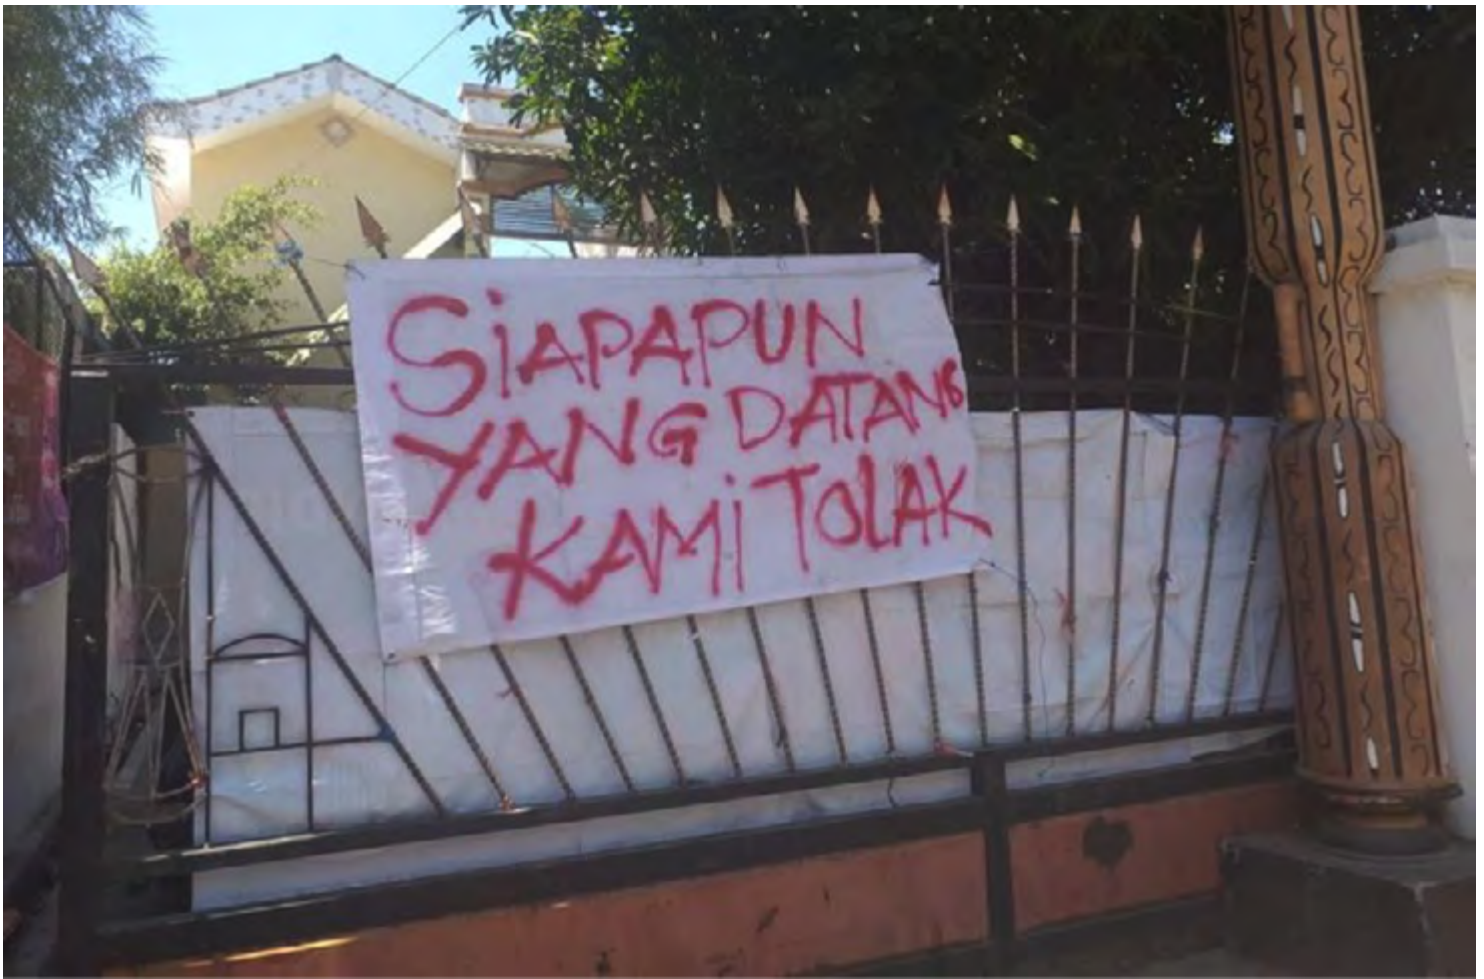 SiAPAPUN
YANG DATANG
KAMi TOLAK